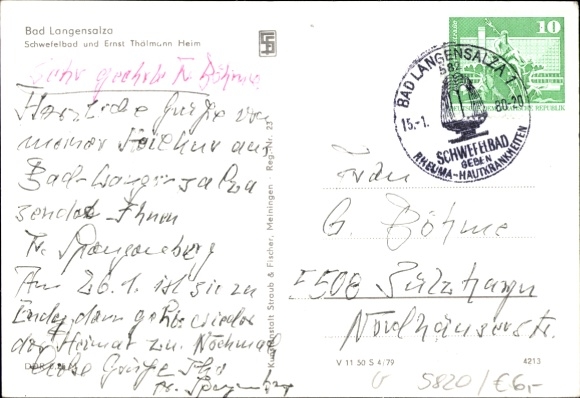 Bad Langensalza
Schwefelbad und Ernst Thälmann Heim
Sehr geehrte Fr. Böhme
Herzliche Grüße von
meiner
aus
Bad-Langensalza
sendet Ihnen
Fr. Spangenberg
Am 26.1. ist sie zu
Ende, dann geht's wieder
der Heimat zu. Nochmals
liebe Grüße Ihre
Fr. Spangenberg
DDR
Kunstanstalt Straub & Fischer, Meiningen - Reg.-Nr.
10
BAD LANGENSALZA 1
582
15.-1. 80-20
SCHWEFELBAD
GEGEN
RHEUMA-HAUTKRANKHEITEN
Frau
G. Böhme
5508 Sülzhayn
Nordhäuserstr.
V 11 50 S 4/79
4213
5820/€6,-